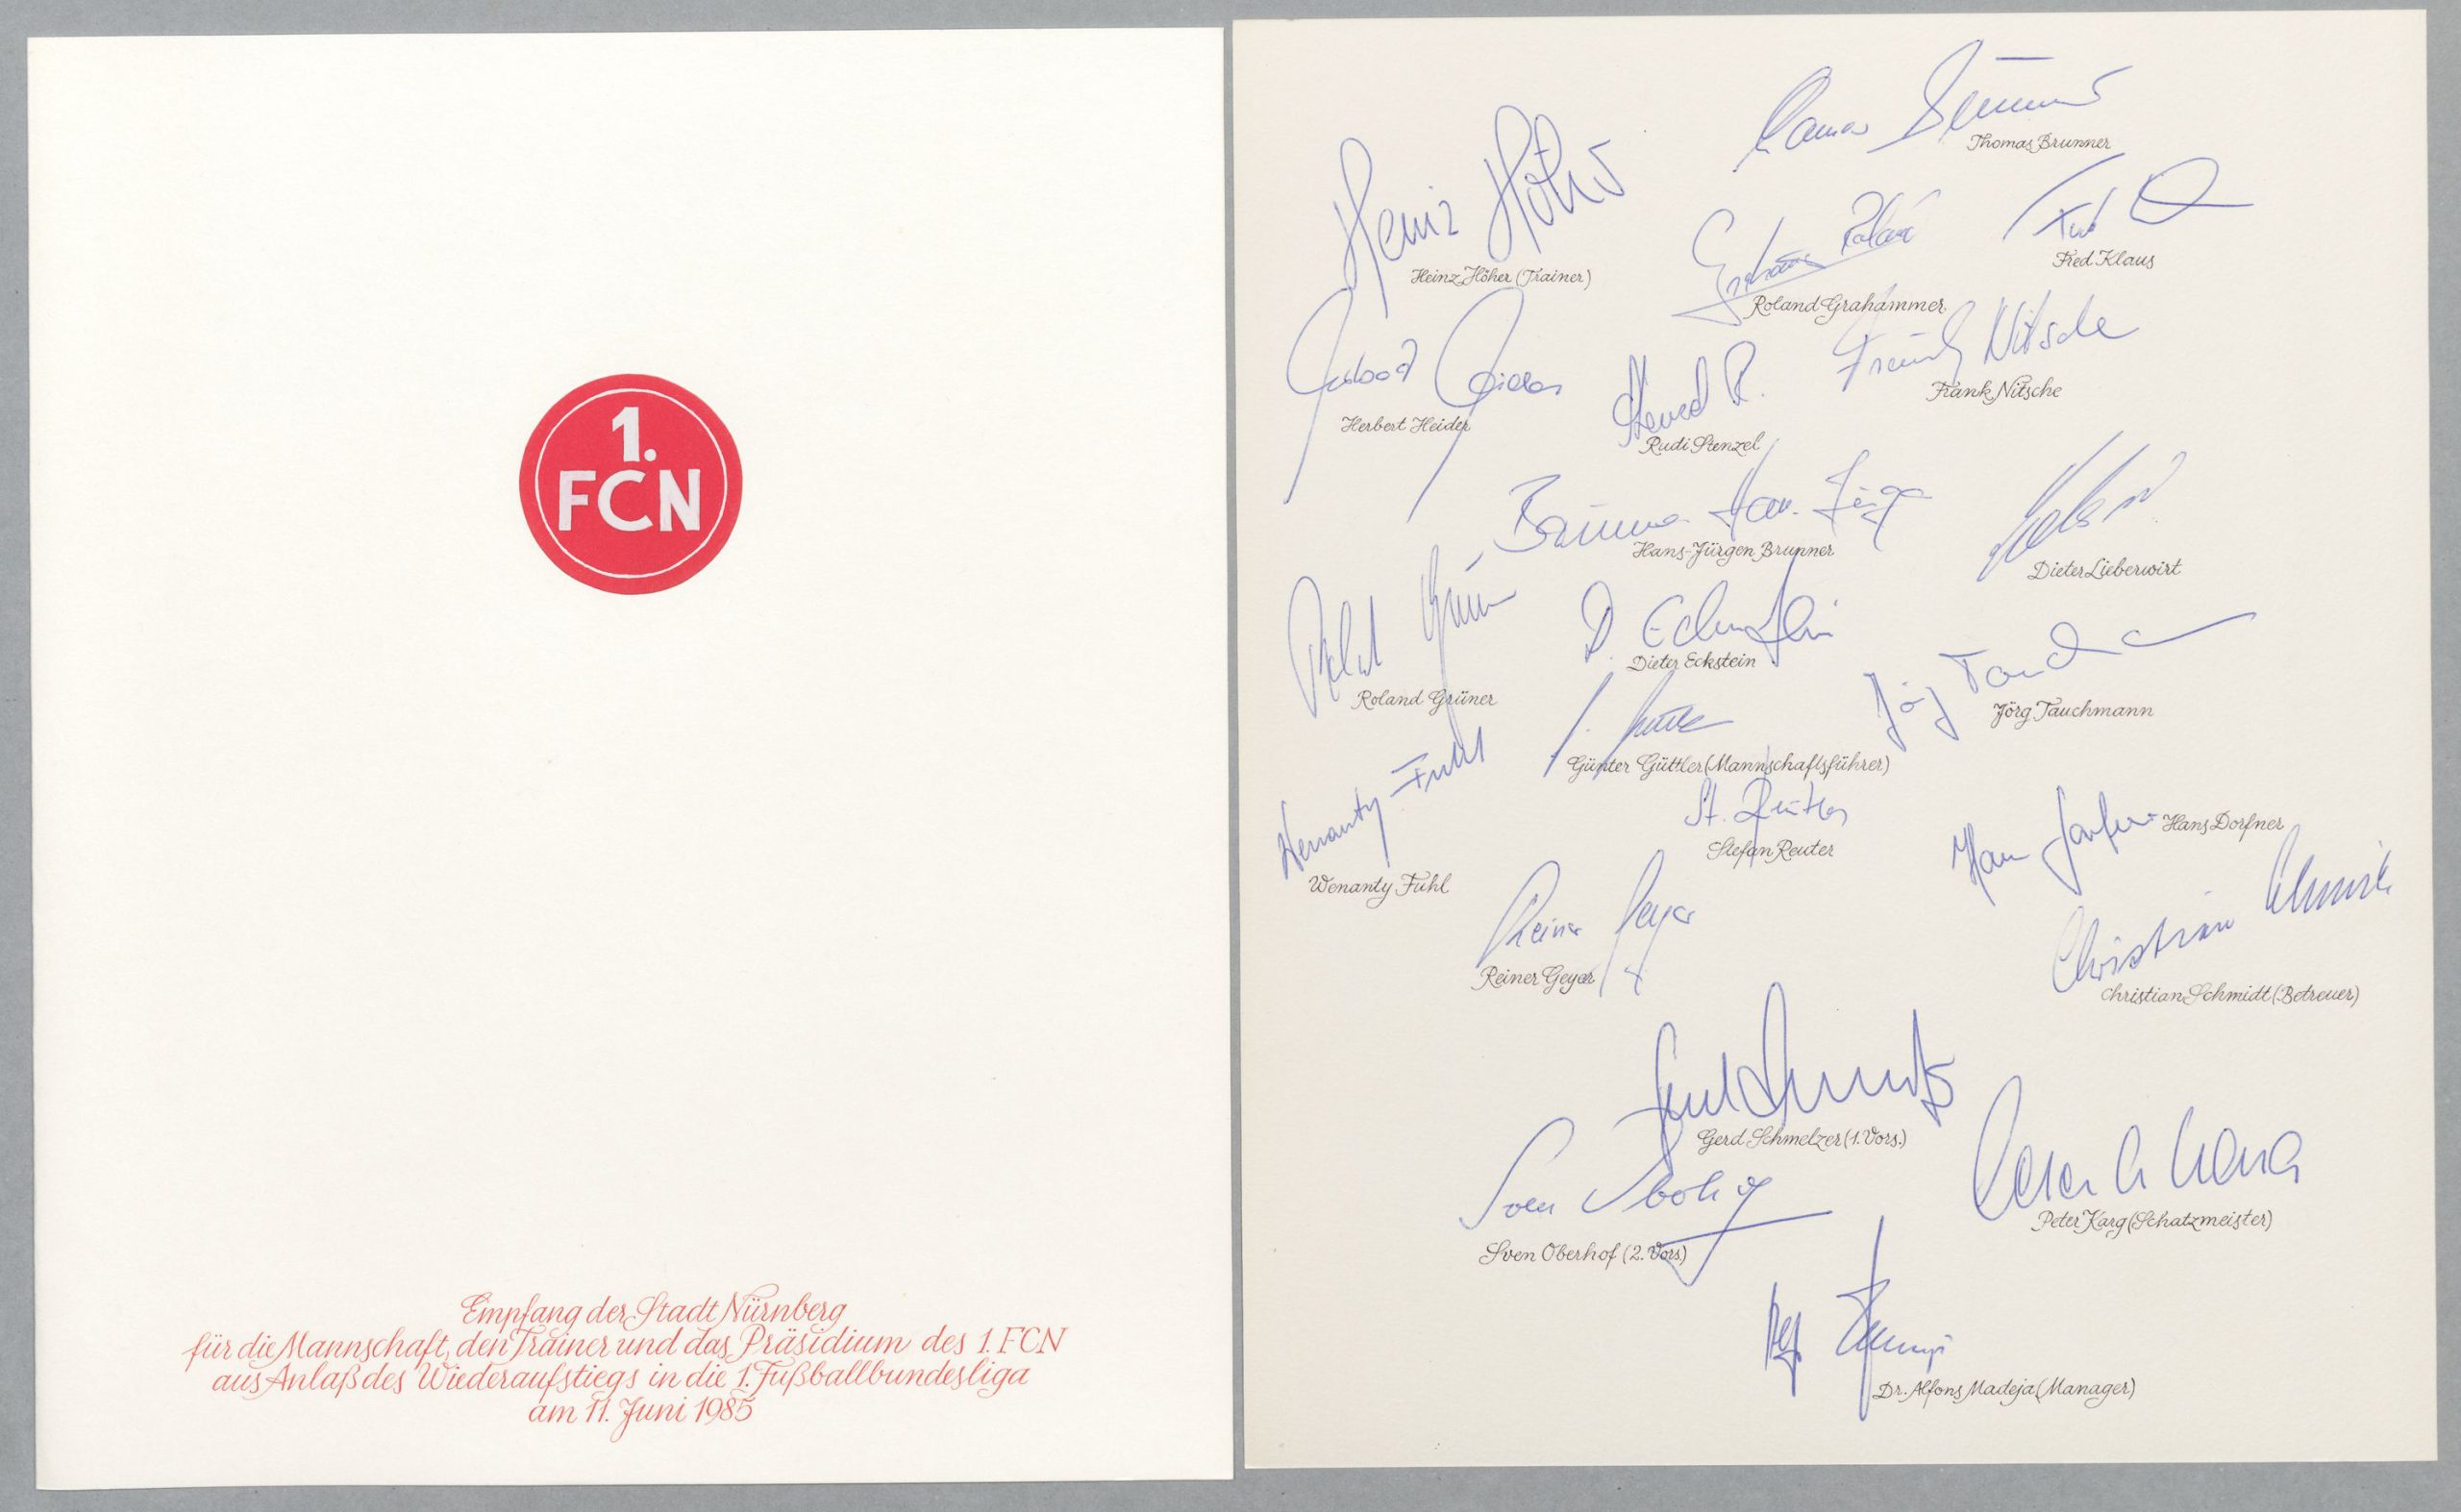 1.
FCN
Empfang der Stadt Nürnberg
für die Mannschaft, den Trainer und das Präsidium des 1. FCN
aus Anlaß des Wiederaufstiegs in die 1. Fußballbundesliga
am 11. Juni 1985
Thomas Brunner
Heinz Höher
Heinz Höher (Trainer)
Fred Klaus
Roland Grahammer
Frank Nitsche
Frank Nitsche
Herbert Heider
Rudi Stenzel
Hans-Jürgen Brunner
Dieter Lieberwirt
D. Eckstein
Dieter Eckstein
Roland Grüner
Jörg Tauchmann
Günter Güttler (Mannschaftsführer)
Wenanty Fuhl
Wenanty Fuhl
St. Reuter
Stefan Reuter
Hans Dorfner
Reiner Geyer
Reiner Geyer
Christian Schmidt
Christian Schmidt (Betreuer)
Gerd Schmelzer (1. Vors.)
Sven Oberhof
Sven Oberhof (2. Vors)
Peter Karg (Schatzmeister)
Dr. Alfons Madeja (Manager)